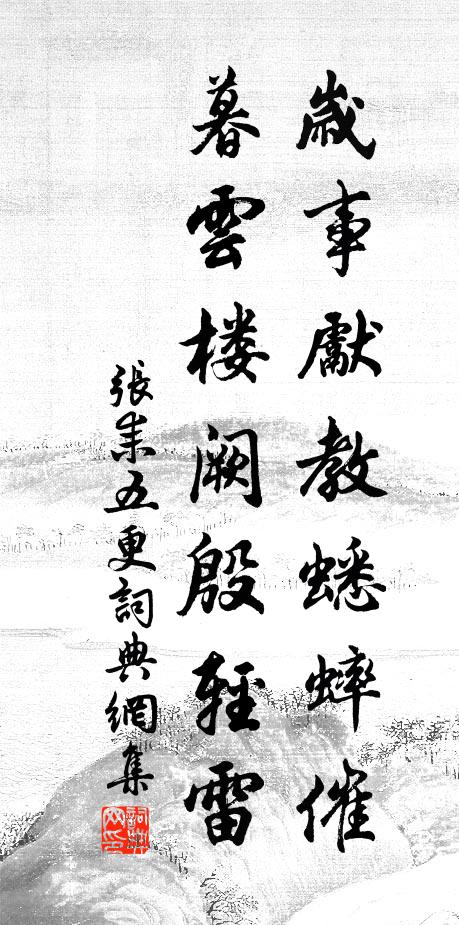 歲事獻教蟋蟀催
暮雲楼闕殷輕雷
張耒五更詞典網集